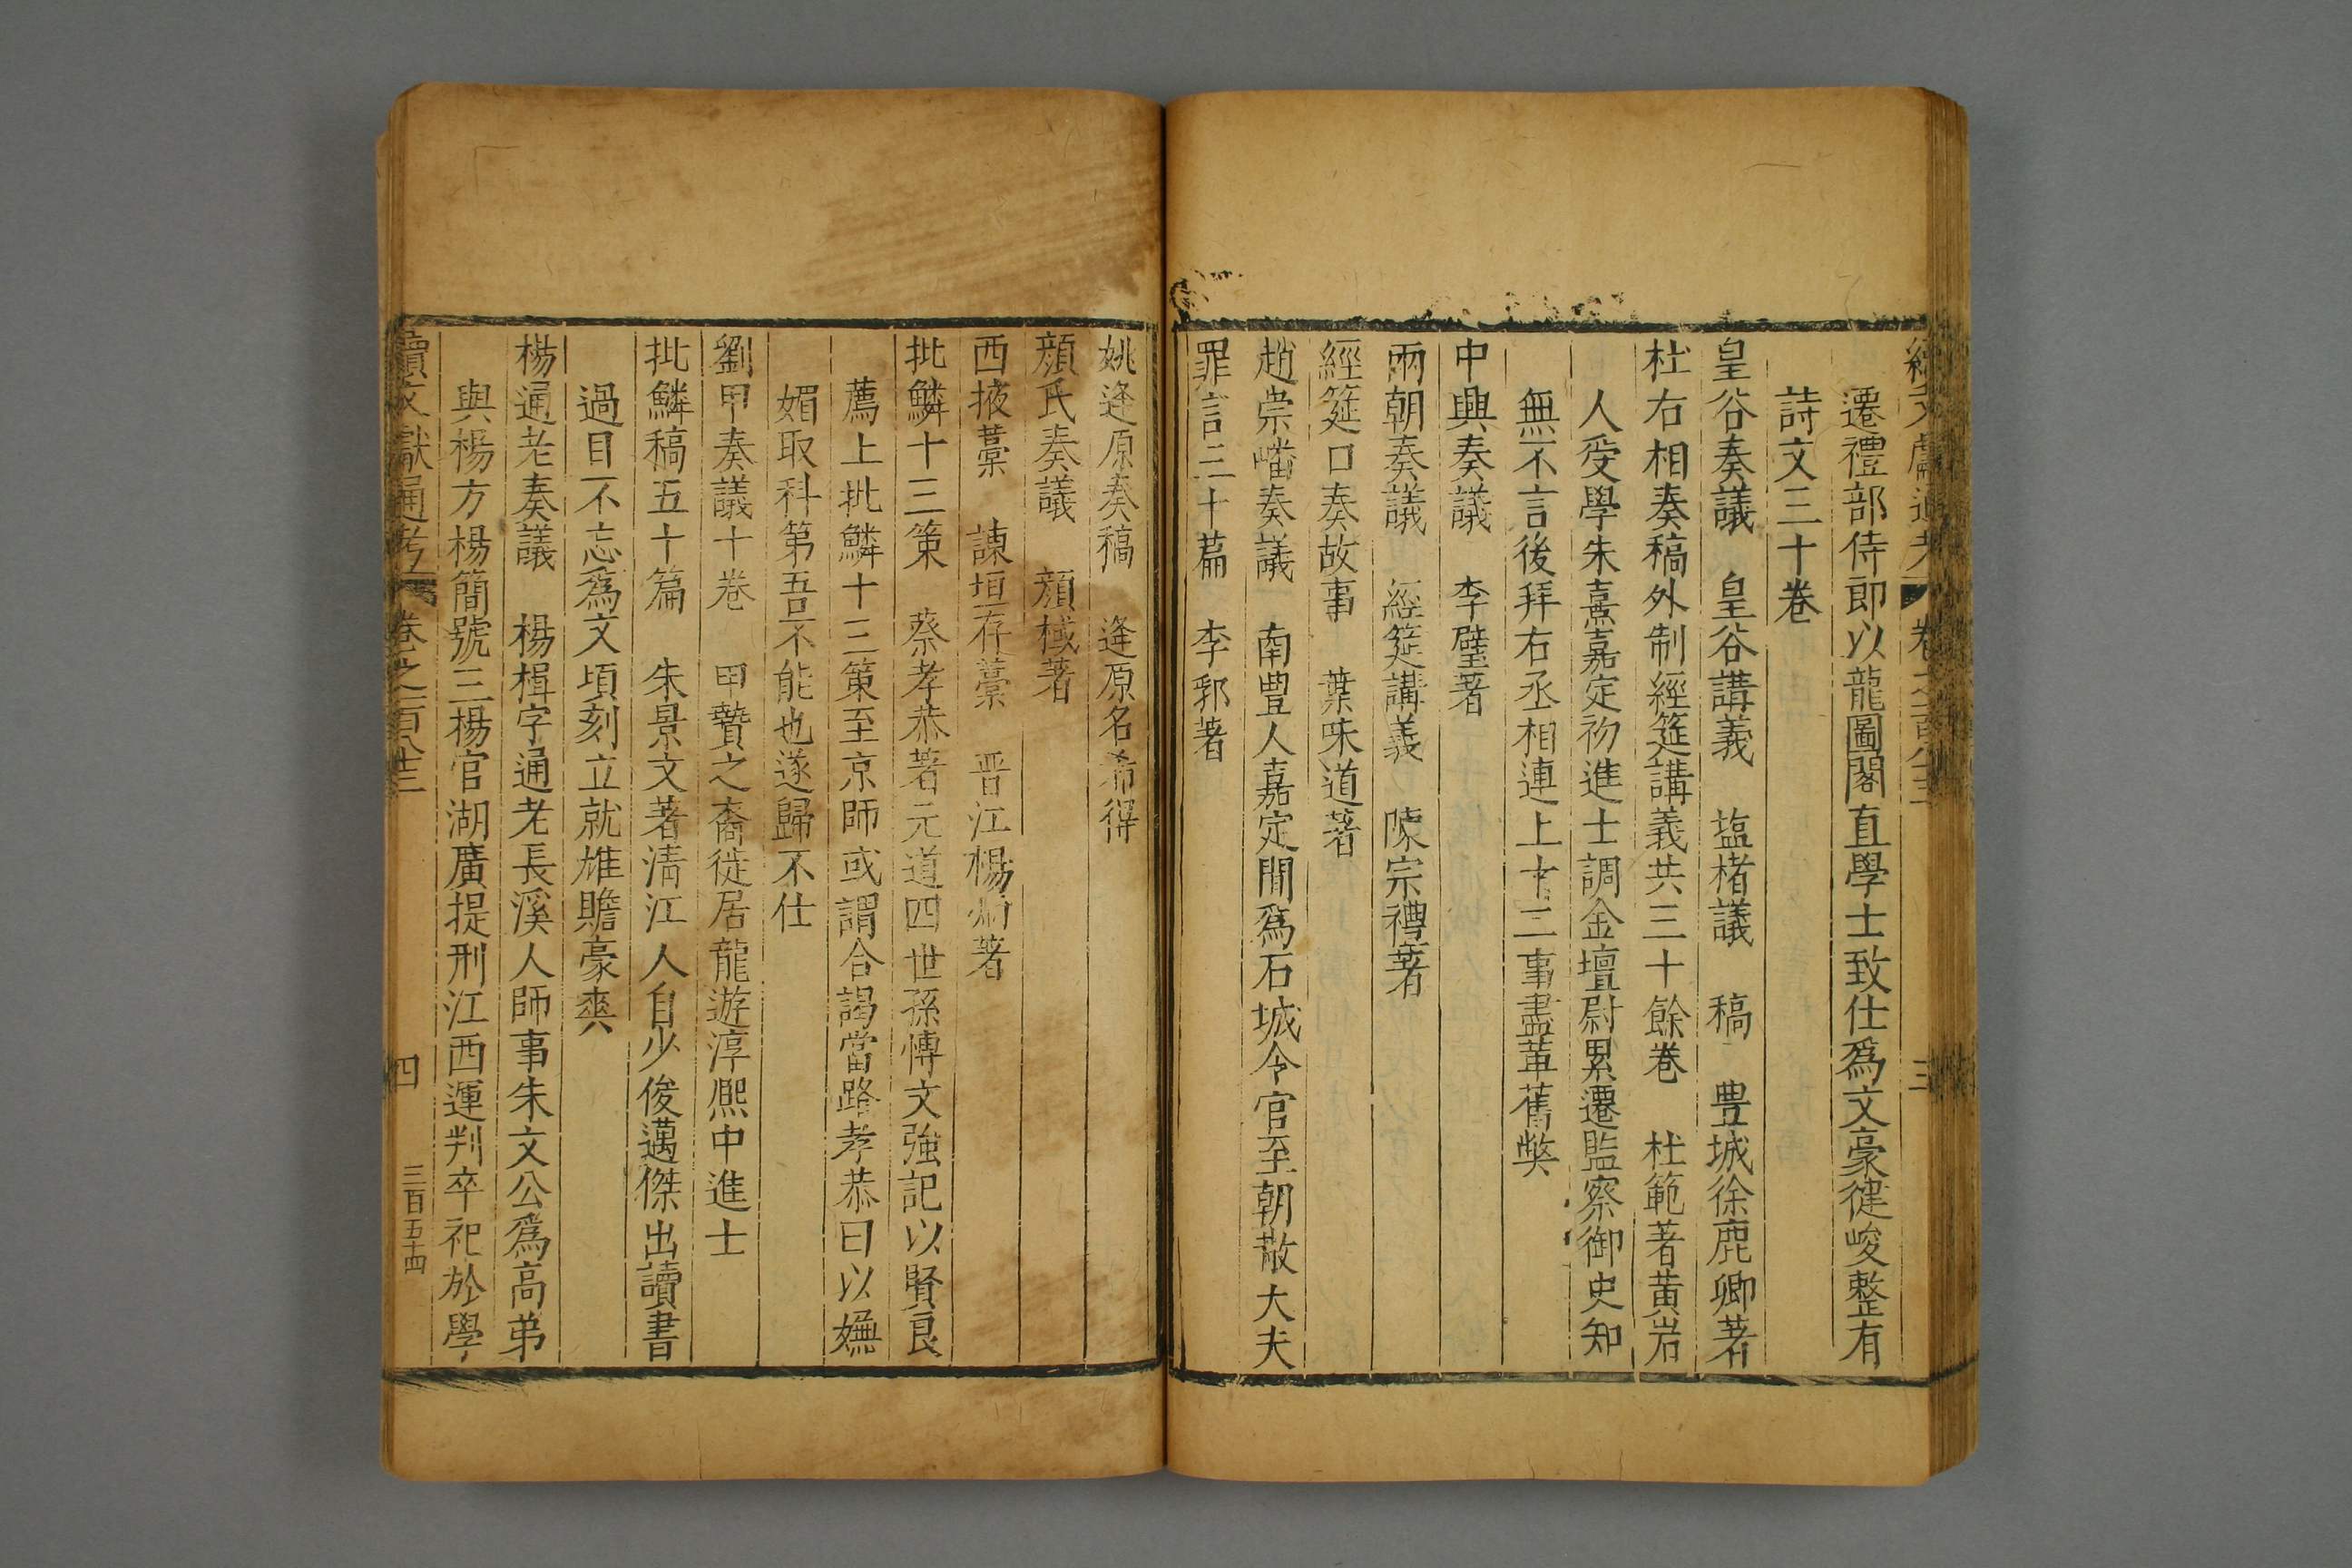 遷禮部侍郎以龍圖閣直學士致仕爲文豪健峻整有
詩文三十卷
皇谷奏議　皇谷講義　塩楮議　稿　豊城徐鹿卿著
杜右相奏稿外制經筵講義共三十餘巻　杜範著黄岩
人受學朱熹嘉定初進士調金壇尉累遷監察御史知
無不言後拜右丞相連上十二事盡革舊獘
中興奏議　李壁著
兩朝奏議　經筵講義　陳宗禮著
經筵口奏故事　葉味道著
趙崇皤奏議　南豊人嘉定間爲石城令官至朝散大夫
罪言三十篇　李郛著
姚逢原奏稿　逢原名希得
顔氏奏議　顔棫著
西掖藁　諫垣存藁　晋江楊炳著
批鱗十三策　蔡孝恭著元道四世孫慱文強記以賢良
薦上批鱗十三策至京師或謂合謁當路孝恭曰以嫵
媚取科第吾不能也遂歸不仕
劉甲奏議十卷　甲贄之裔徙居龍遊淳熈中進士
批鱗稿五十篇　朱景文著清江人自少俊邁傑出讀書
過目不忘爲文頃刻立就雄贍豪爽
楊通老奏議　楊楫字通老長溪人師事朱文公爲高弟
與楊方楊簡號三楊官湖廣提刑江西運判卒祀於學
續文獻通考　卷之一百八十三　四　三百五十四